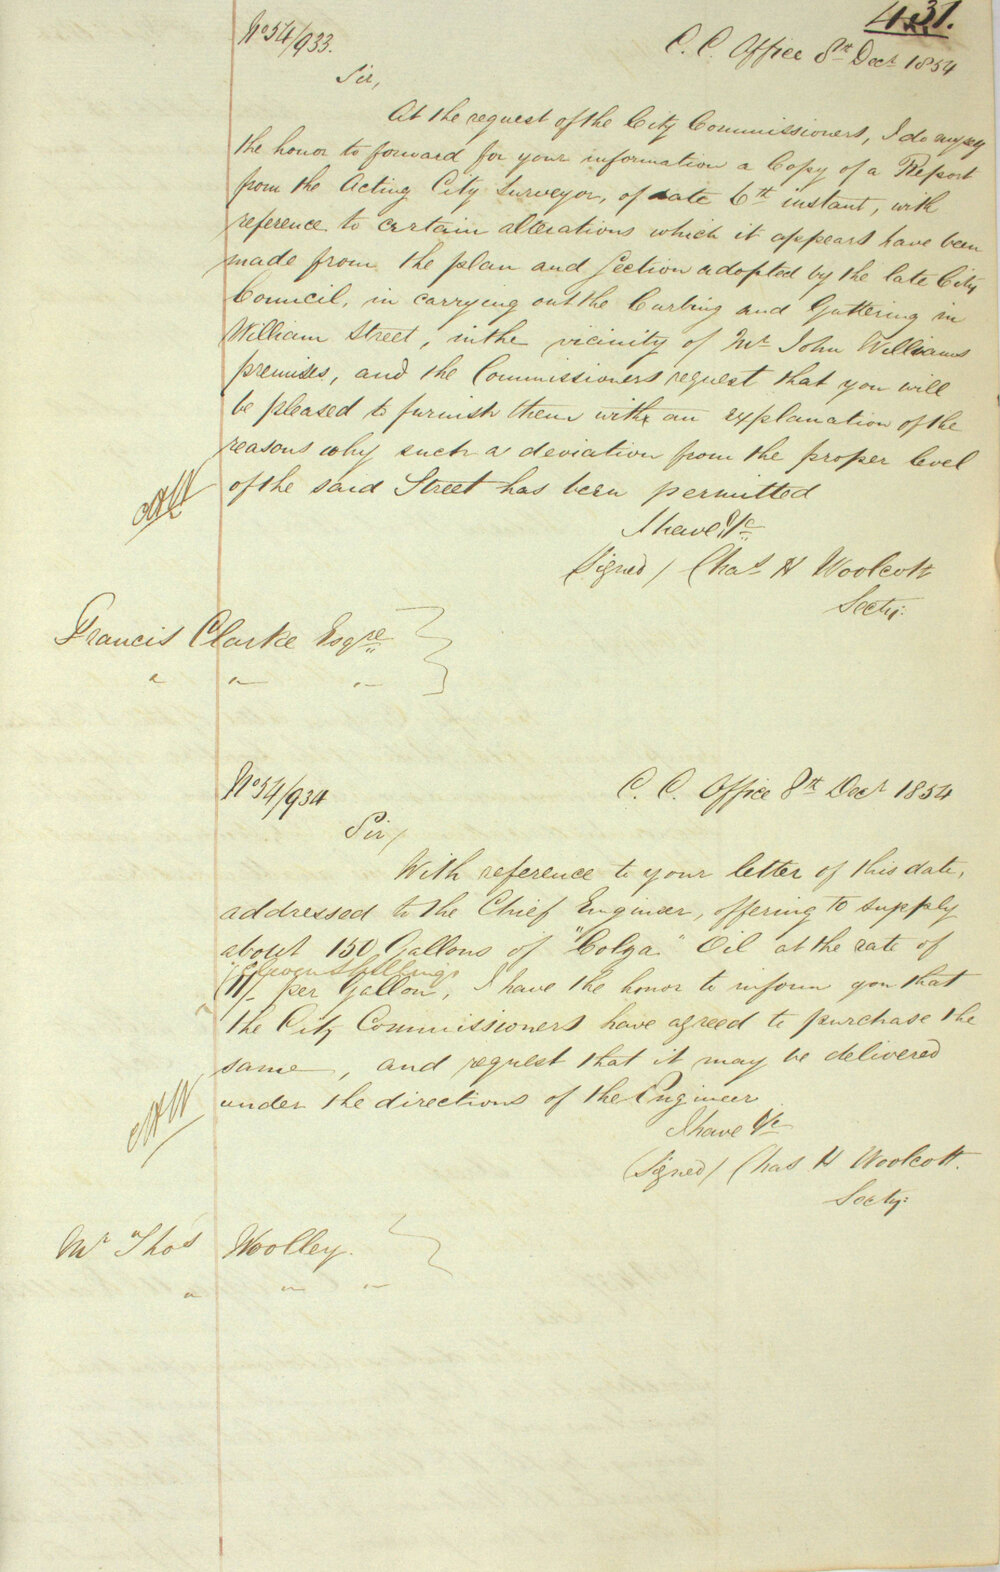 431.
No 54/933.
C. C. Office 8th Decr 1854
Sir,
At the request of the City Commissioners, I do myself
the honor to forward for your information a Copy of a Report
from the Acting City Surveyor, of date 6th instant, with
reference to certain alterations which it appears have been
made from the plan and Section adopted by the late City
Council, in carrying out the Curbing and Guttering in
William Street, in the vicinity of Mr John Williams
premises, and the Commissioners request that you will
be pleased to furnish them with an explanation of the
reasons why such a deviation from the proper level
of the said Street has been permitted
I have &c
Signed / Chas H Woolcott
Secty:
CHW
Francis Clarke Esqre
" " "
No 54/934
C. C. Office 8th Decr 1854
Sir/
With reference to your letter of this date,
addressed to the Chief Engineer, offering to supply
about 150 Gallons of "Colza" Oil at the rate of
"Eleven Shillings
(11/- per Gallon, I have the honor to inform you that
the City Commissioners have agreed to purchase the
same, and request that it may be delivered
under the directions of the Engineer
I have &c
(Signed) Chas H Woolcott.
Secty:
CHW
Mr Thos Woolley.
" " "